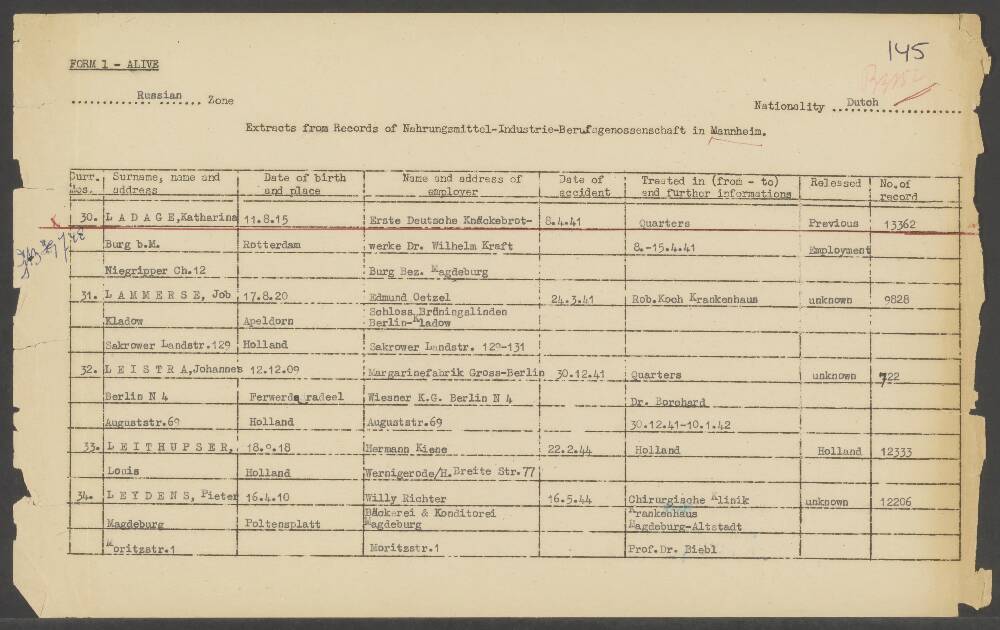 145
FORM 1 - ALIVE
Russian Zone
Nationality Dutch
Extracts from Records of Nahrungsmittel-Industrie-Berufsgenossenschaft in Mannheim.
Curr. Nos. | Surname, name and address | Date of birth and place | Name and address of employer | Date of accident | Treated in (from - to) and further informations | Released | No. of record
30. L A D A G E, Katharina | 11.8.15 | Erste Deutsche Knäckebrot- | 8.4.41 | Quarters | Previous | 13362
Burg b.M. | Rotterdam | werke Dr. Wilhelm Kraft | 8.-15.4.41 | Employment
Niegripper Ch.12 | Burg Bez. Magdeburg
31. L A M M E R S E, Job | 17.8.20 | Edmund Oetzel | 24.3.41 | Rob.Koch Krankenhaus | unknown | 9828
Kladow | Apeldorn | Schloss Brüningslinden
Berlin-Kladow
Sakrower Landstr.129 | Holland | Sakrower Landstr. 129-131
32. L E I S T R A, Johannes | 12.12.09 | Margarinefabrik Gross-Berlin | 30.12.41 | Quarters | unknown | 722
Berlin N 4 | Ferwerderadeel | Wiesner K.G. Berlin N 4 | Dr. Borchard
Auguststr.69 | Holland | Auguststr.69 | 30.12.41-10.1.42
33. L E I T H U P S E R, | 18.9.18 | Hermann Kiene | 22.2.44 | Holland | Holland | 12333
Louis | Holland | Wernigerode/H. Breite Str. 77
34. L E Y D E N S, Pieter | 16.4.10 | Willy Richter | 16.5.44 | Chirurgische Klinik | unknown | 12206
Magdeburg | Poltensplatt | Bäckerei & Konditorei | Krankenhaus
Magdeburg | Magdeburg-Altstadt
Moritzstr.1 | Moritzstr.1 | Prof.Dr. Biebl